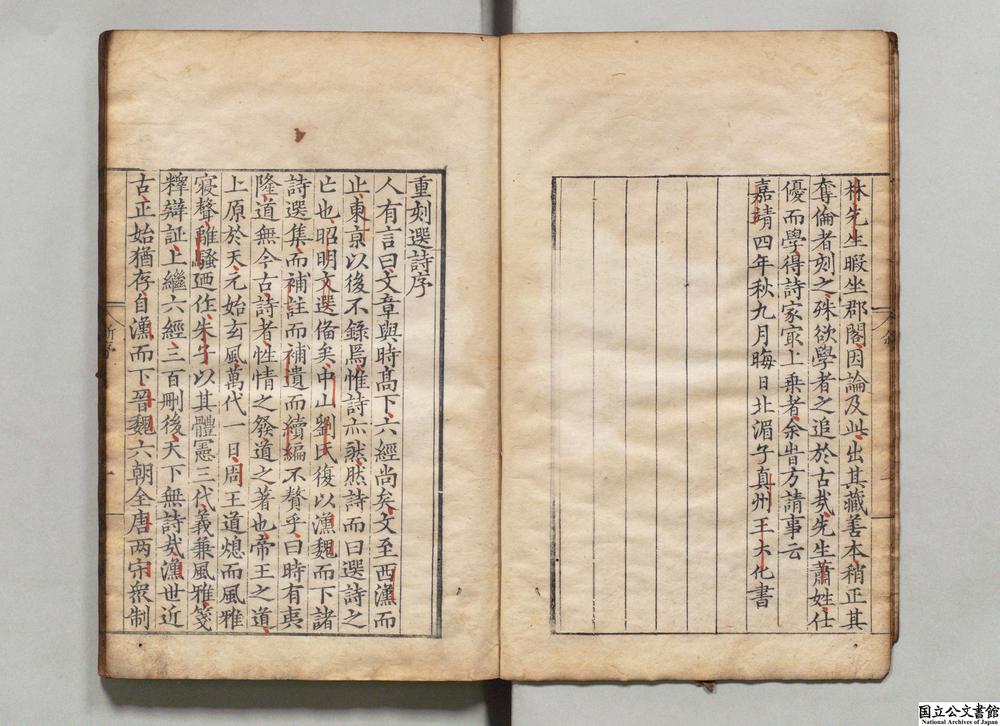 林先生暇坐郡閣因論及此出其藏善本稍正其
奪倫者刻之殊欲學者之追於古哉先生蕭姓仕
優而學得詩家㝡上乗者余甞方請事云
嘉靖四年秋九月晦日北湄子真州王大化書
重刻選詩序
人有言曰文章與時髙下六經尚矣文至西漢而
止東京以後不錄焉惟詩亦然然詩而曰選詩之
亡也昭明文選俻矣中山劉氏復以漢魏而下諸
詩選集而補註而補遺而續編不贅乎曰時有夷
隆道無今古詩者性情之發道之著也帝王之道
上原於天元始玄風萬代一日周王道熄而風雅
寢聲離騷廼作朱子以其體憲三代義兼風雅箋
釋辯証上繼六經三百刪後天下無詩哉漢世近
古正始猶存自漢而下晉魏六朝全唐两宋衆制
国立公文書館
National Archives of Japan